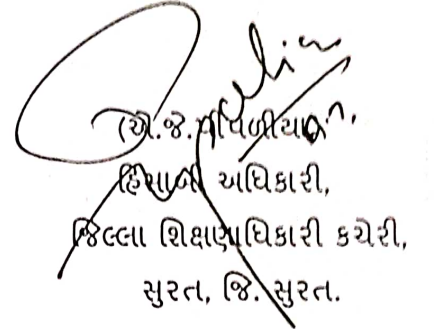 (એ.જ.પીપળીયા)
હિસાબી અધિકારી,
જિલ્લા શિક્ષણાધિકારી કચેરી,
સુરત, જિ. સુરત.